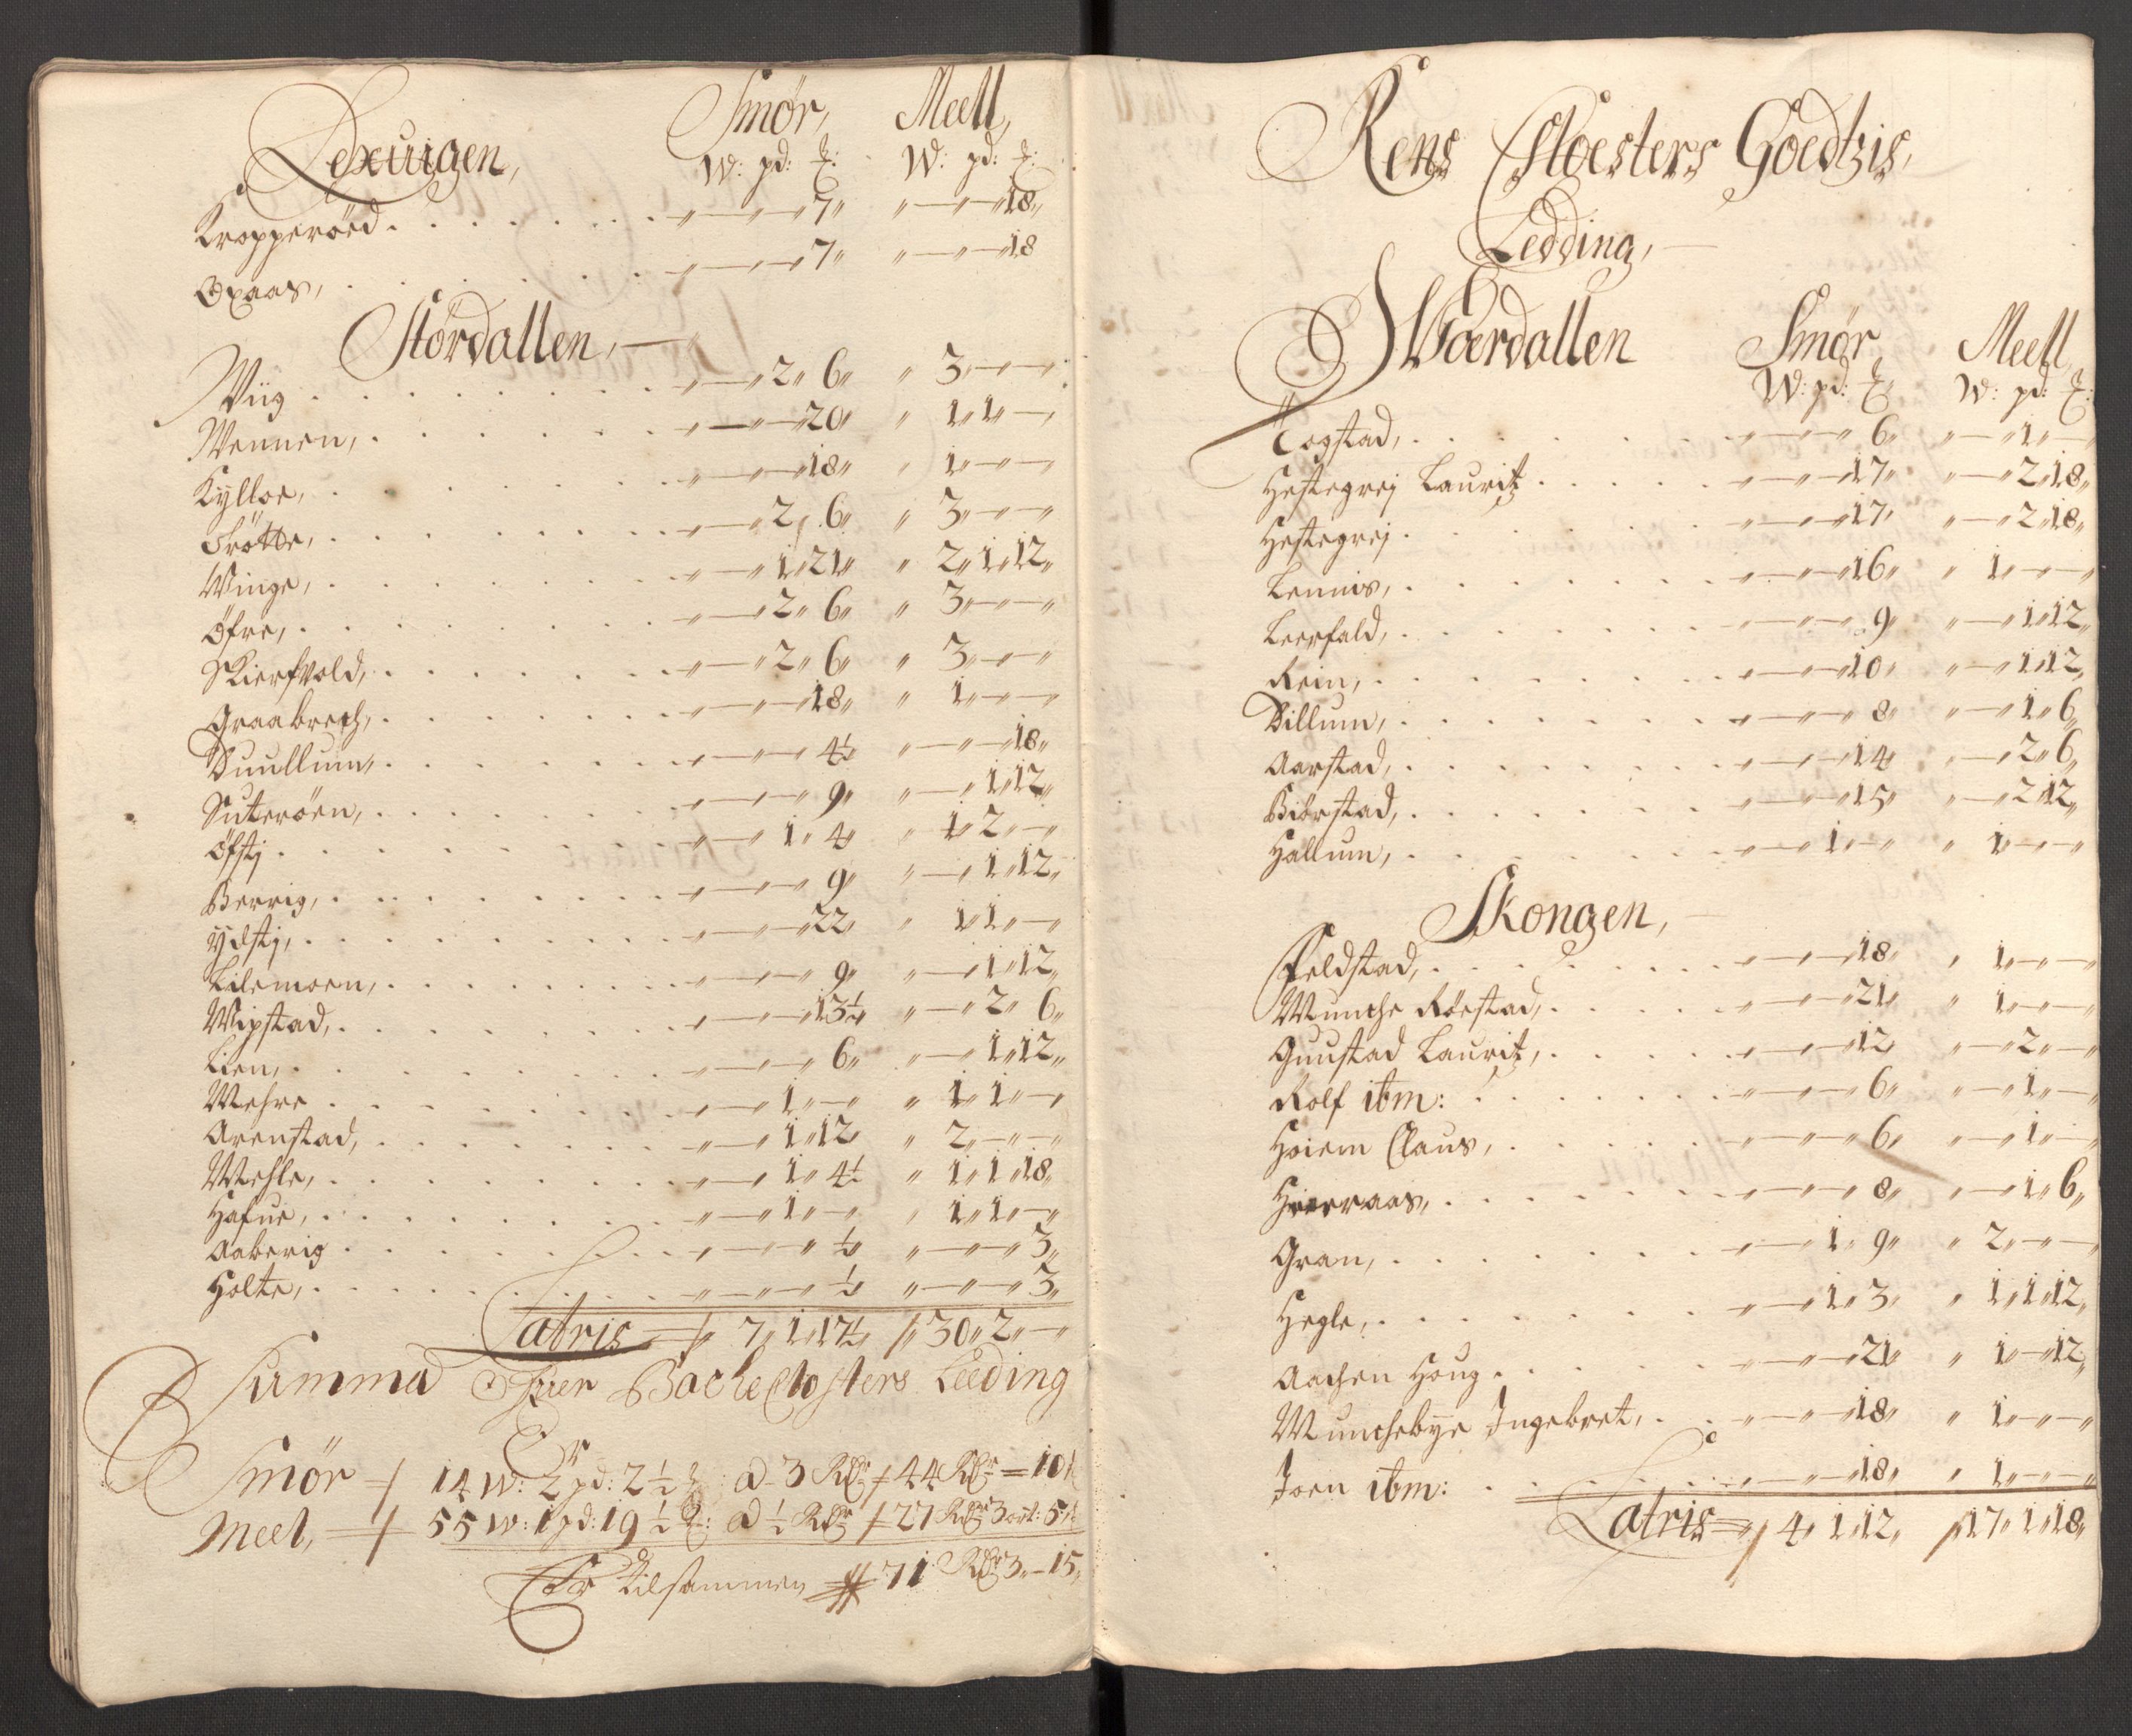 Lexuigen, Smør, Meell,
W: pd: ℔: W: pd: ℔:
Kropperöed . . . 〃—〃—〃7〃 〃—〃—〃18〃
Oxaas, . . . 〃—〃—〃7〃 〃—〃—〃18
Stördallen,
Wiig . . . 〃—〃2〃6〃 〃3〃—〃—〃
Wennen, . . . 〃—〃—〃20〃 〃1〃1〃—〃
Kylloe, . . . 〃—〃—〃18〃 〃1〃—〃—〃
Trötte, . . . 〃—〃2〃6〃 〃3〃—〃—〃
Winge, . . . 〃—〃1〃21〃 〃2〃1〃12〃
Öfre, . . . 〃—〃2〃6〃 〃3〃—〃—〃
Skierfvold, . . . 〃—〃2〃6〃 〃3〃—〃—〃
Graabrech, . . . 〃—〃—〃18〃 〃1〃—〃—〃
Duullum, . . . 〃—〃—〃4½ 〃—〃—〃18〃
Suteröen, . . . 〃—〃—〃9〃 〃—〃1〃12〃
Öfstj . . . 〃—〃1〃4〃 〃1〃2〃—〃
Berrig, . . . 〃—〃—〃9〃 〃—〃1〃12〃
Ydstj, . . . 〃—〃—〃22〃 〃1〃1〃—〃
Lilemoen, . . . 〃—〃—〃9〃 〃—〃1〃12〃
Wipstad, . . . 〃—〃—〃13½ 〃—〃2〃6〃
Lien, . . . 〃—〃—〃6〃 〃—〃1〃12〃
Mehre . . . 〃—〃1〃—〃 〃1〃1〃—〃
Arenstad, . . . 〃—〃1〃12〃 〃2〃—〃—〃
Mehle, . . . 〃—〃1〃4½ 〃1〃1〃18〃
Hafue, . . . 〃—〃1〃—〃 〃1〃1〃—〃
Aaberig . . . 〃—〃—〃½ 〃—〃—〃3〃
Holte, . . . 〃—〃—〃½ 〃—〃—〃3〃
Latris 7〃1〃17½ 30〃2〃—〃
Summa Bache Closters Leeding
Er
Smør 14 W: 2 pd: 2½ ℔: a 3 Rdr 44 Rdr = 10
Meel, 55 W: 1 pd: 19½ ℔: a ½ Rdr 27 Rdr 3 ort: 5
Er tilsammen 71 Rdr 3〃—15〃
Rens Closters Goedtzis,
Ledding,
Wærdallen Smør Meell,
W: pd: ℔ W: pd: ℔:
Togstad, . . . 〃—〃—〃6〃 〃—〃1〃—〃
Hestegrej Lauritz . . . 〃—〃—〃17〃 〃—〃2〃18〃
Hestegrej . . . 〃—〃—〃17〃 〃—〃2〃18〃
Lennis, . . . 〃—〃—〃16〃 〃1〃—〃—〃
Leerfald, . . . 〃—〃—〃9〃 〃—〃1〃12〃
Rein, . . . 〃—〃—〃10〃 〃—〃1〃12〃
Dillum, . . . 〃—〃—〃8〃 〃—〃1〃6〃
Aarstad, . . . 〃—〃—〃14〃 〃—〃2〃6〃
Biörstad, . . . 〃—〃—〃15〃 〃—〃2〃12〃
Hallum, . . . 〃—〃1〃—〃 〃1〃—〃—〃
Skongen,
Feldstad, . . . 〃—〃—〃18〃 〃1〃—〃—〃
Munche Röestad, . . . 〃—〃—〃21〃 〃1〃—〃—〃
Guustad Lauritz, . . . 〃—〃—〃12〃 〃—〃2〃—〃
Rolf ibm: . . . 〃—〃—〃6〃 〃—〃1〃—〃
Hoiem Claus, . . . 〃—〃—〃6〃 〃—〃1〃—〃
. . . 〃—〃—〃8〃 〃—〃1〃6〃
Gran, . . . 〃—〃1〃9〃 〃2〃—〃—〃
Hegle, . . . 〃—〃1〃3〃 〃1〃1〃12〃
Aachen Houg . . . 〃—〃—〃21〃 〃1〃—〃12〃
Munchebye Ingebret, . . 〃—〃—〃18〃 〃1〃—〃—〃
Joen ibm: . . . 〃—〃—〃18〃 〃1〃—〃—〃
Latris 4〃1〃12〃 17〃1〃18〃